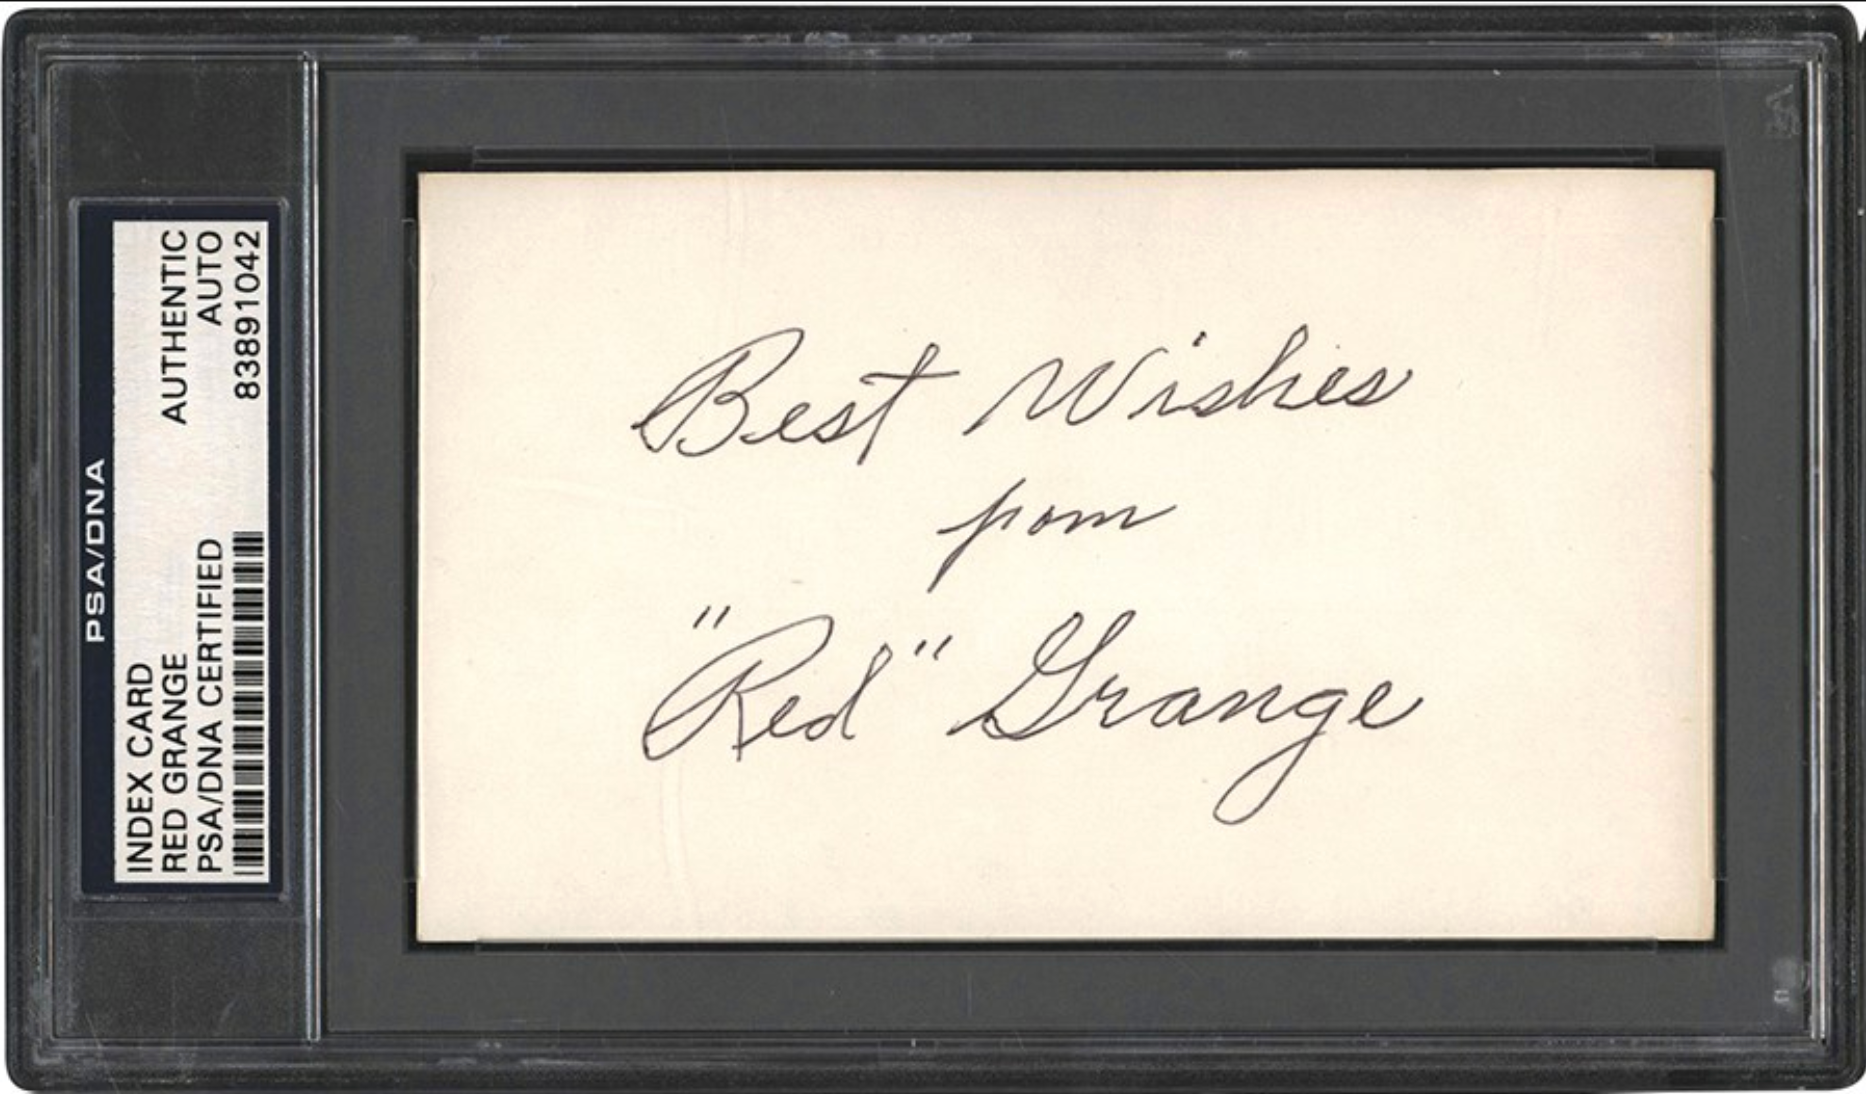 PSA/DNA
INDEX CARD AUTHENTIC
RED GRANGE AUTO
PSA/DNA CERTIFIED 83891042
Best Wishes
from
"Red" Grange